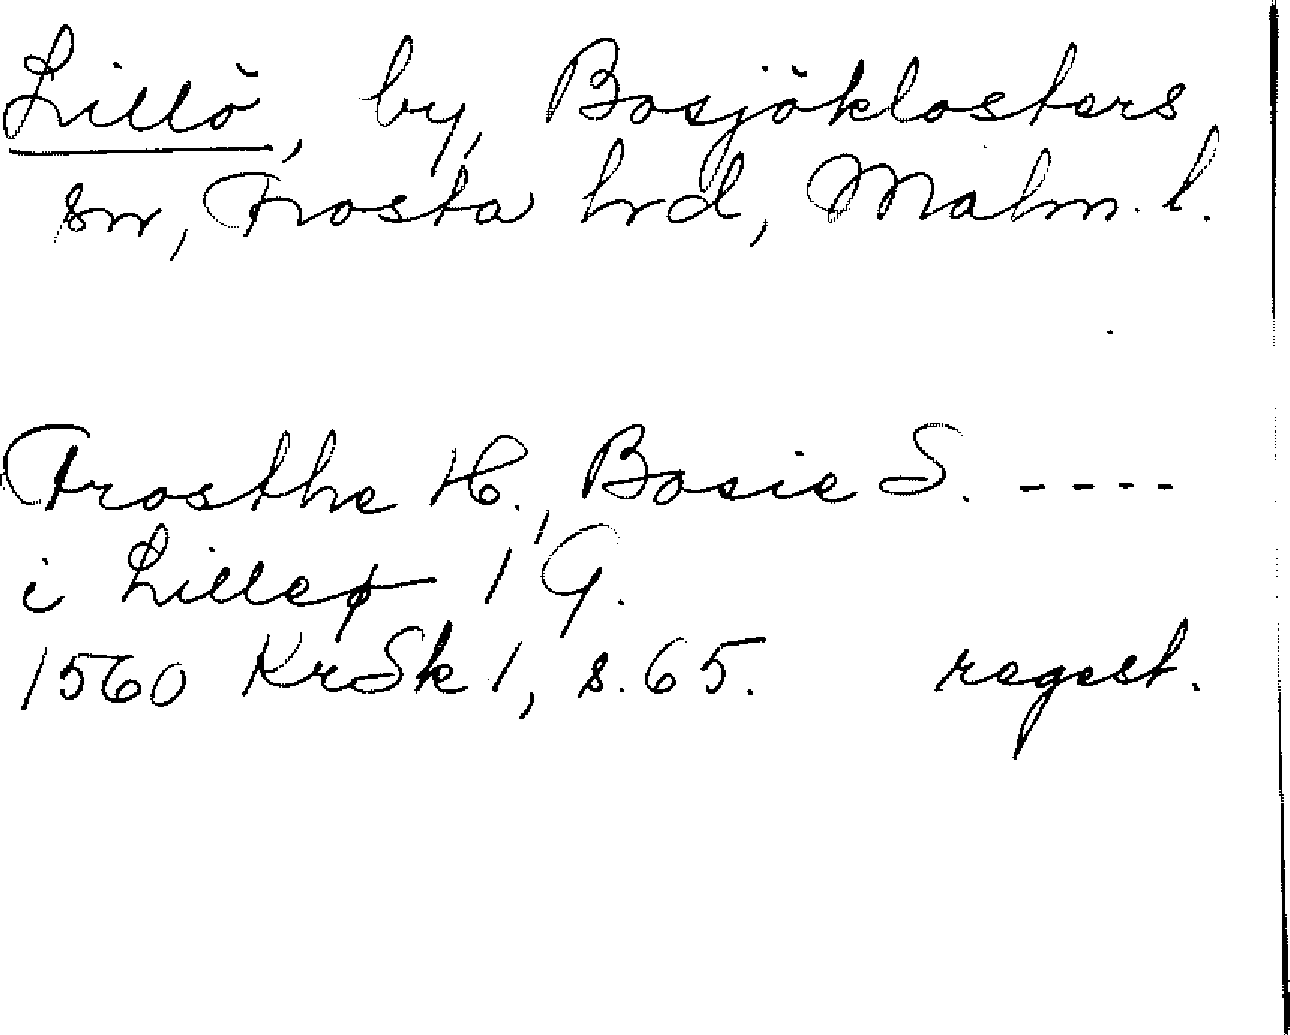 Lillö, by, Bosjöklosters
sn, Frosta hrd, Malm. l.
Frosthe H., Bosie S. ----
i Lilleø 1 G.
1560 KrSk 1, s. 65. regest.